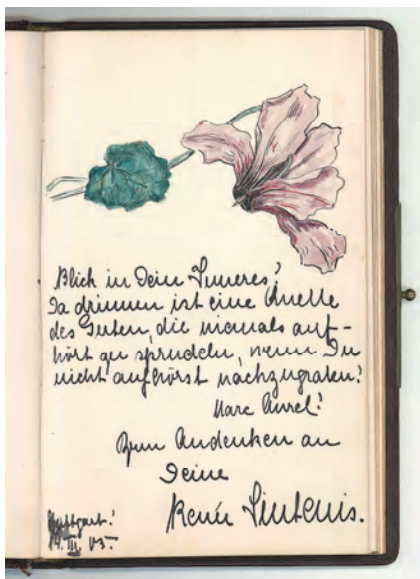 Blick in Dein Inneres!
Da drinnen ist eine Quelle
des Guten, die niemals auf-
hört zu sprudeln, wenn Du
nicht aufhörst nachzugraben!
Marc Aurel!
Zum Andenken an
Deine
Renée Sintenis.
Stuttgart!
14. III. 03.